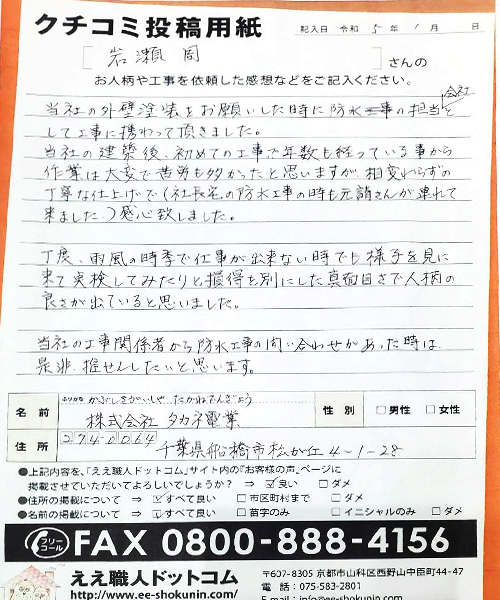 クチコミ投稿用紙
記入日 令和 5年 1月 日
[岩瀬 周]さんの
お人柄や工事を依頼した感想などをご記入ください。
会社
当社の外壁塗装をお願いした時に防水工事の担当と
して工事に携わって頂きました。
当社の建築後、初めての工事で年数も経っている事から
作業は大変で苦労も多かったと思いますが、相変わらずの
丁寧な仕上げで(社長宅の防水工事の時も元請さんが連れて
来ました。)感心致しました。
丁度、雨風の時季で仕事が出来ない時でも様子を見に
来て点検してみたりと損得を別にした真面目さで人柄の
良さが出ていると思いました。
当社の工事関係者から防水工事の問い合わせがあった時は、
是非、推せんしたいと思います。
ふりがな かぶしきがいしゃ たかねでんぎょう
名前 株式会社 タカネ電業 性別 □男性 □女性
住所 274-0064
千葉県船橋市松が丘4-1-28
●上記内容を、「ええ職人ドットコム」サイト内の『お客様の声』ページに
掲載させていただいてよろしいでしょうか? ⇒ ☑良い □ダメ
●住所の掲載について ⇒ ☑すべて良い □市区町村まで □ダメ
●名前の掲載について ⇒ ☑すべて良い □苗字のみ □イニシャルのみ □ダメ
フリーコール FAX 0800-888-4156
ええ職人ドットコム
http://www.ee-shokunin.com/
〒607-8305 京都市山科区西野山中臣町44-47
電話:075-583-2801
Email:info@ee-shokunin.com